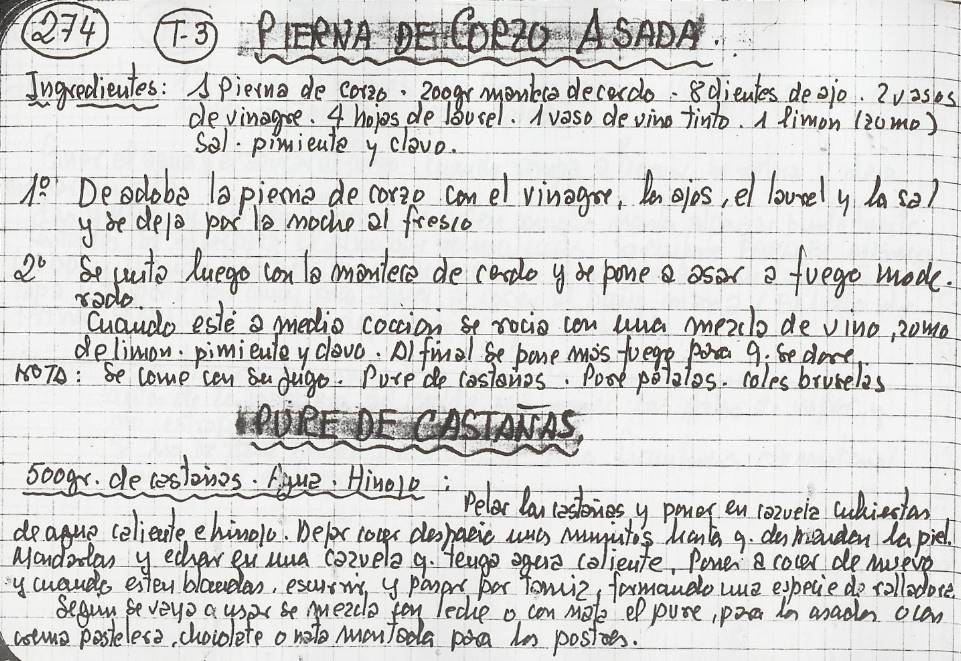 274 T-3 PIERNA DE CORZO ASADA.
Ingredientes: 1 Pierna de corzo . 200gr manteca de cerdo - 8 dientes de ajo . 2 vasos
de vinagre . 4 hojas de laurel . 1 vaso de vino tinto . 1 limon (zumo)
Sal . pimienta y clavo.
1º De adoba la pierna de corzo con el vinagre, los ajos, el laurel y la sal
y se deja por la noche al fresco
2º Se unta luego con la manteca de cerdo y se pone a asar a fuego mode-
rado
Cuando esté a media coccion se rocia con una mezcla de vino, zumo
de limon . pimienta y clavo . Al final se pone más fuego para q. se dore.
NOTA: Se come con su jugo . Pure de castañas . Pure patatas . coles bruselas
PURE DE CASTAÑAS.
500gr. de castañas . Agua . Hinojo :
Pelar las castañas y poner en cazuela cubiertas
de agua caliente e hinojo. Dejar cocer despacio unos minutos hasta q. desprendan la piel.
y echar en una cazuela q. tenga agua caliente. Poner a cocer de nuevo
y cuando esten blandas, escurrir y pasar por tamiz, formando una especie de ralladora.
Segun se vaya a usar se mezcla con leche o con nata el pure, para los asados o con
crema pastelera, chocolate o nata montada para los postres.